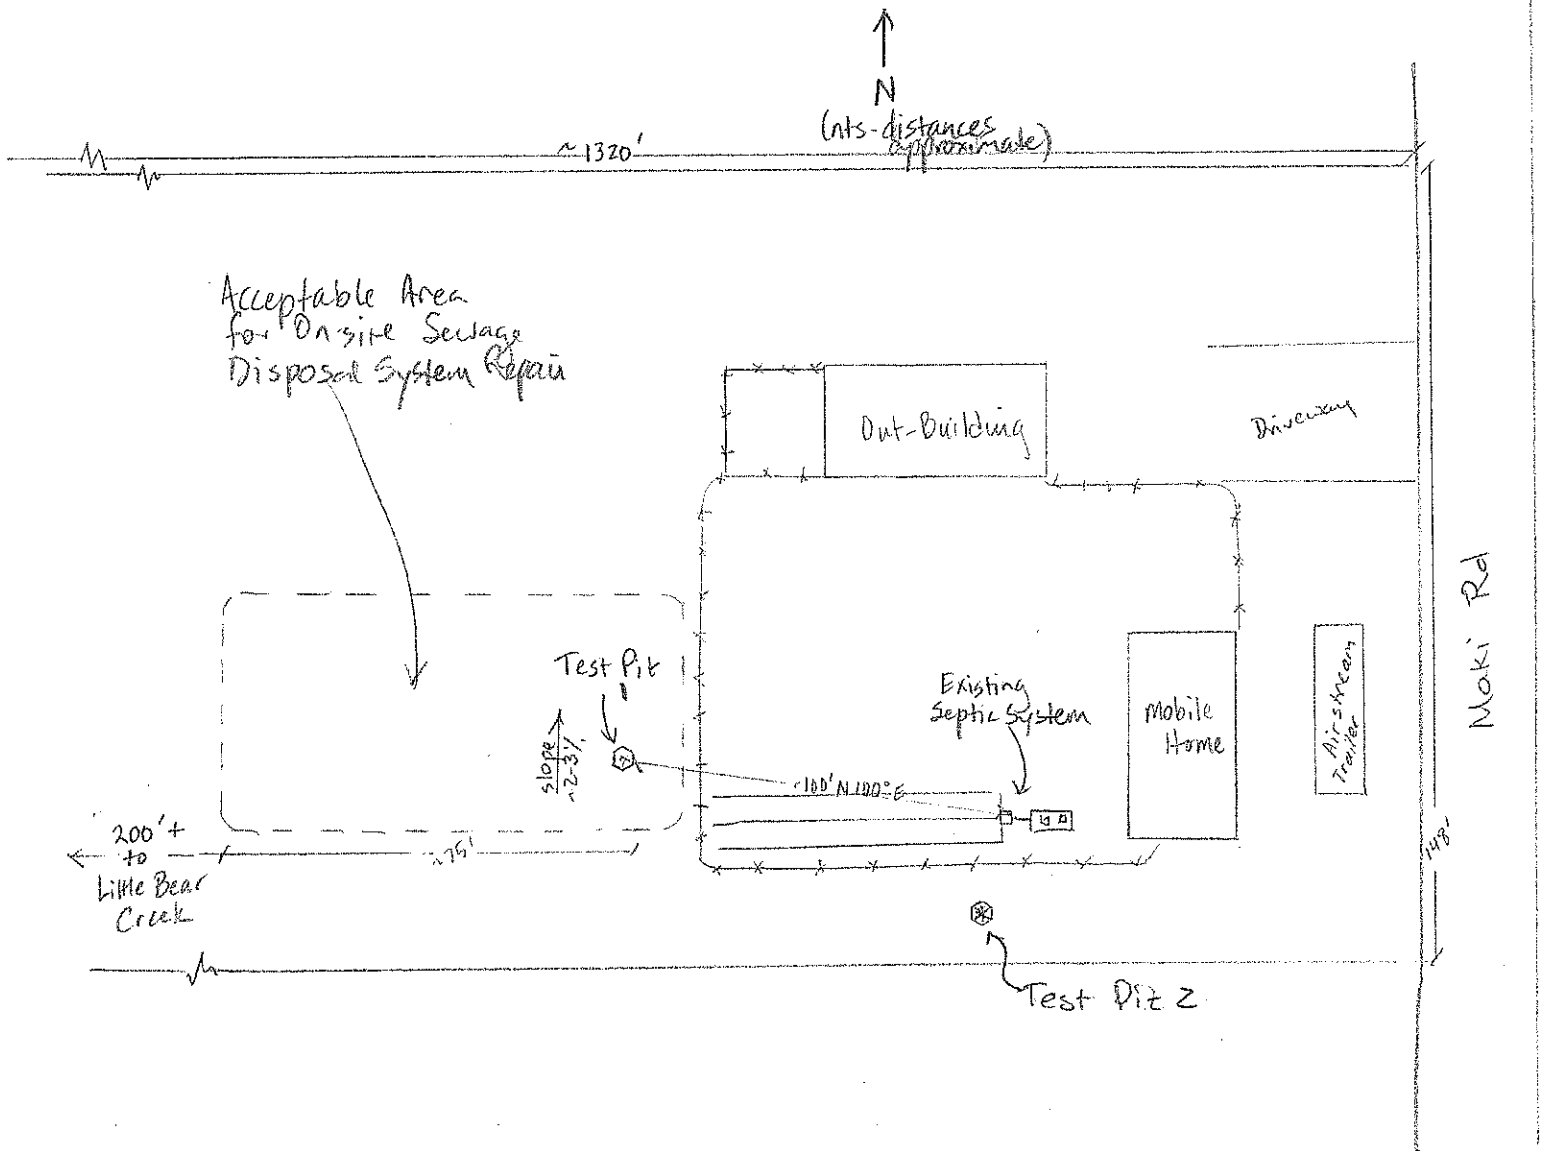 N
(nts-distances
approximate)
~1320'
Acceptable Area
for On-site Sewage
Disposal System Repair
Out-Building
Driveway
Maki Rd
Test Pit
1
Existing
Septic System
Mobile
Home
Airstream
Trailer
slope
~2-3%
~100' N 100° E
200'+
to
Little Bear
Creek
~75'
148'
Test Pit 2